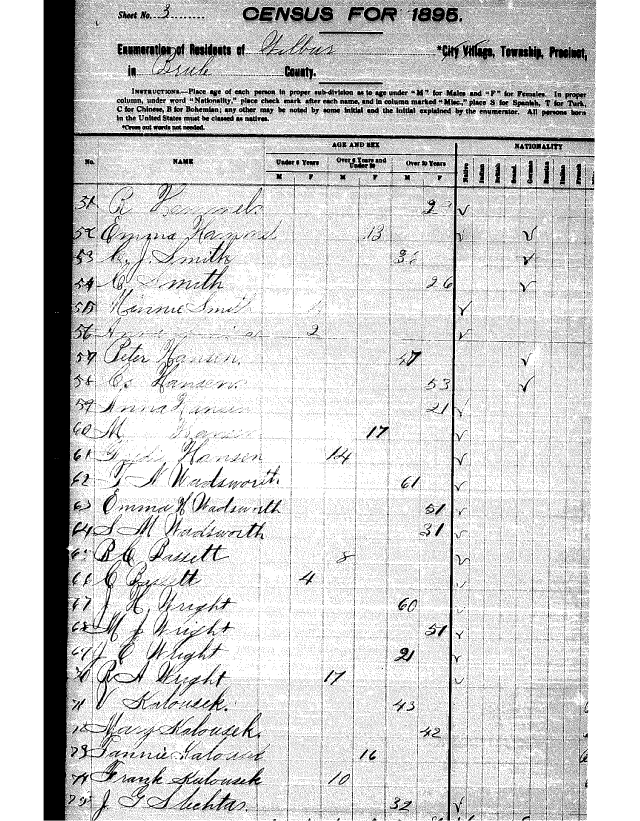 Sheet No. 3
CENSUS FOR 1895.
Enumeration of Residents of Wilbur *City Village, Township, Precinct,
in Brule County.
INSTRUCTIONS.—Place age of each person in proper sub-division as to age under "M" for Males and "F" for Females. In proper
column, under word "Nationality," place check mark after each name, and in column marked "Misc.," place S for Spanish, T for Turk,
C for Chinese, B for Bohemian; any other may be noted by some initial and the initial explained by the enumerator. All persons born
in the United States must be classed as natives.
*Cross out words not needed.
AGE AND SEX NATIONALITY
No. NAME Under 6 Years Over 6 Years and Under 20 Over 20 Years
M F M F M F Native
51 R ✓
52 Emma 13 ✓ ✓
53 C. J. Smith ✓
54 C Smith 26 ✓
55 Minnie Smith ✓
56 2 ✓
57 Peter Hansen 47 ✓
58 Hansen 53 ✓
59 Anna Hansen 21 ✓
60 M Hansen 17 ✓
61 Hansen 14 ✓
62 Wadsworth 61 ✓
63 Emma H Wadsworth 51 ✓
64 S M Wadsworth 31 ✓
65 R C Bassett 8 ✓
66 C Bassett 4 ✓
67 J H Wright 60 ✓
68 M J Wright 51 ✓
69 J C Wright 21 ✓
70 R A Wright 17 ✓
71 V Kalousek. 43
72 Mary Kalousek. 42
73 Fannie Kalousek 16
74 Frank Kalousek 10
75 J G Slechta 32 ✓